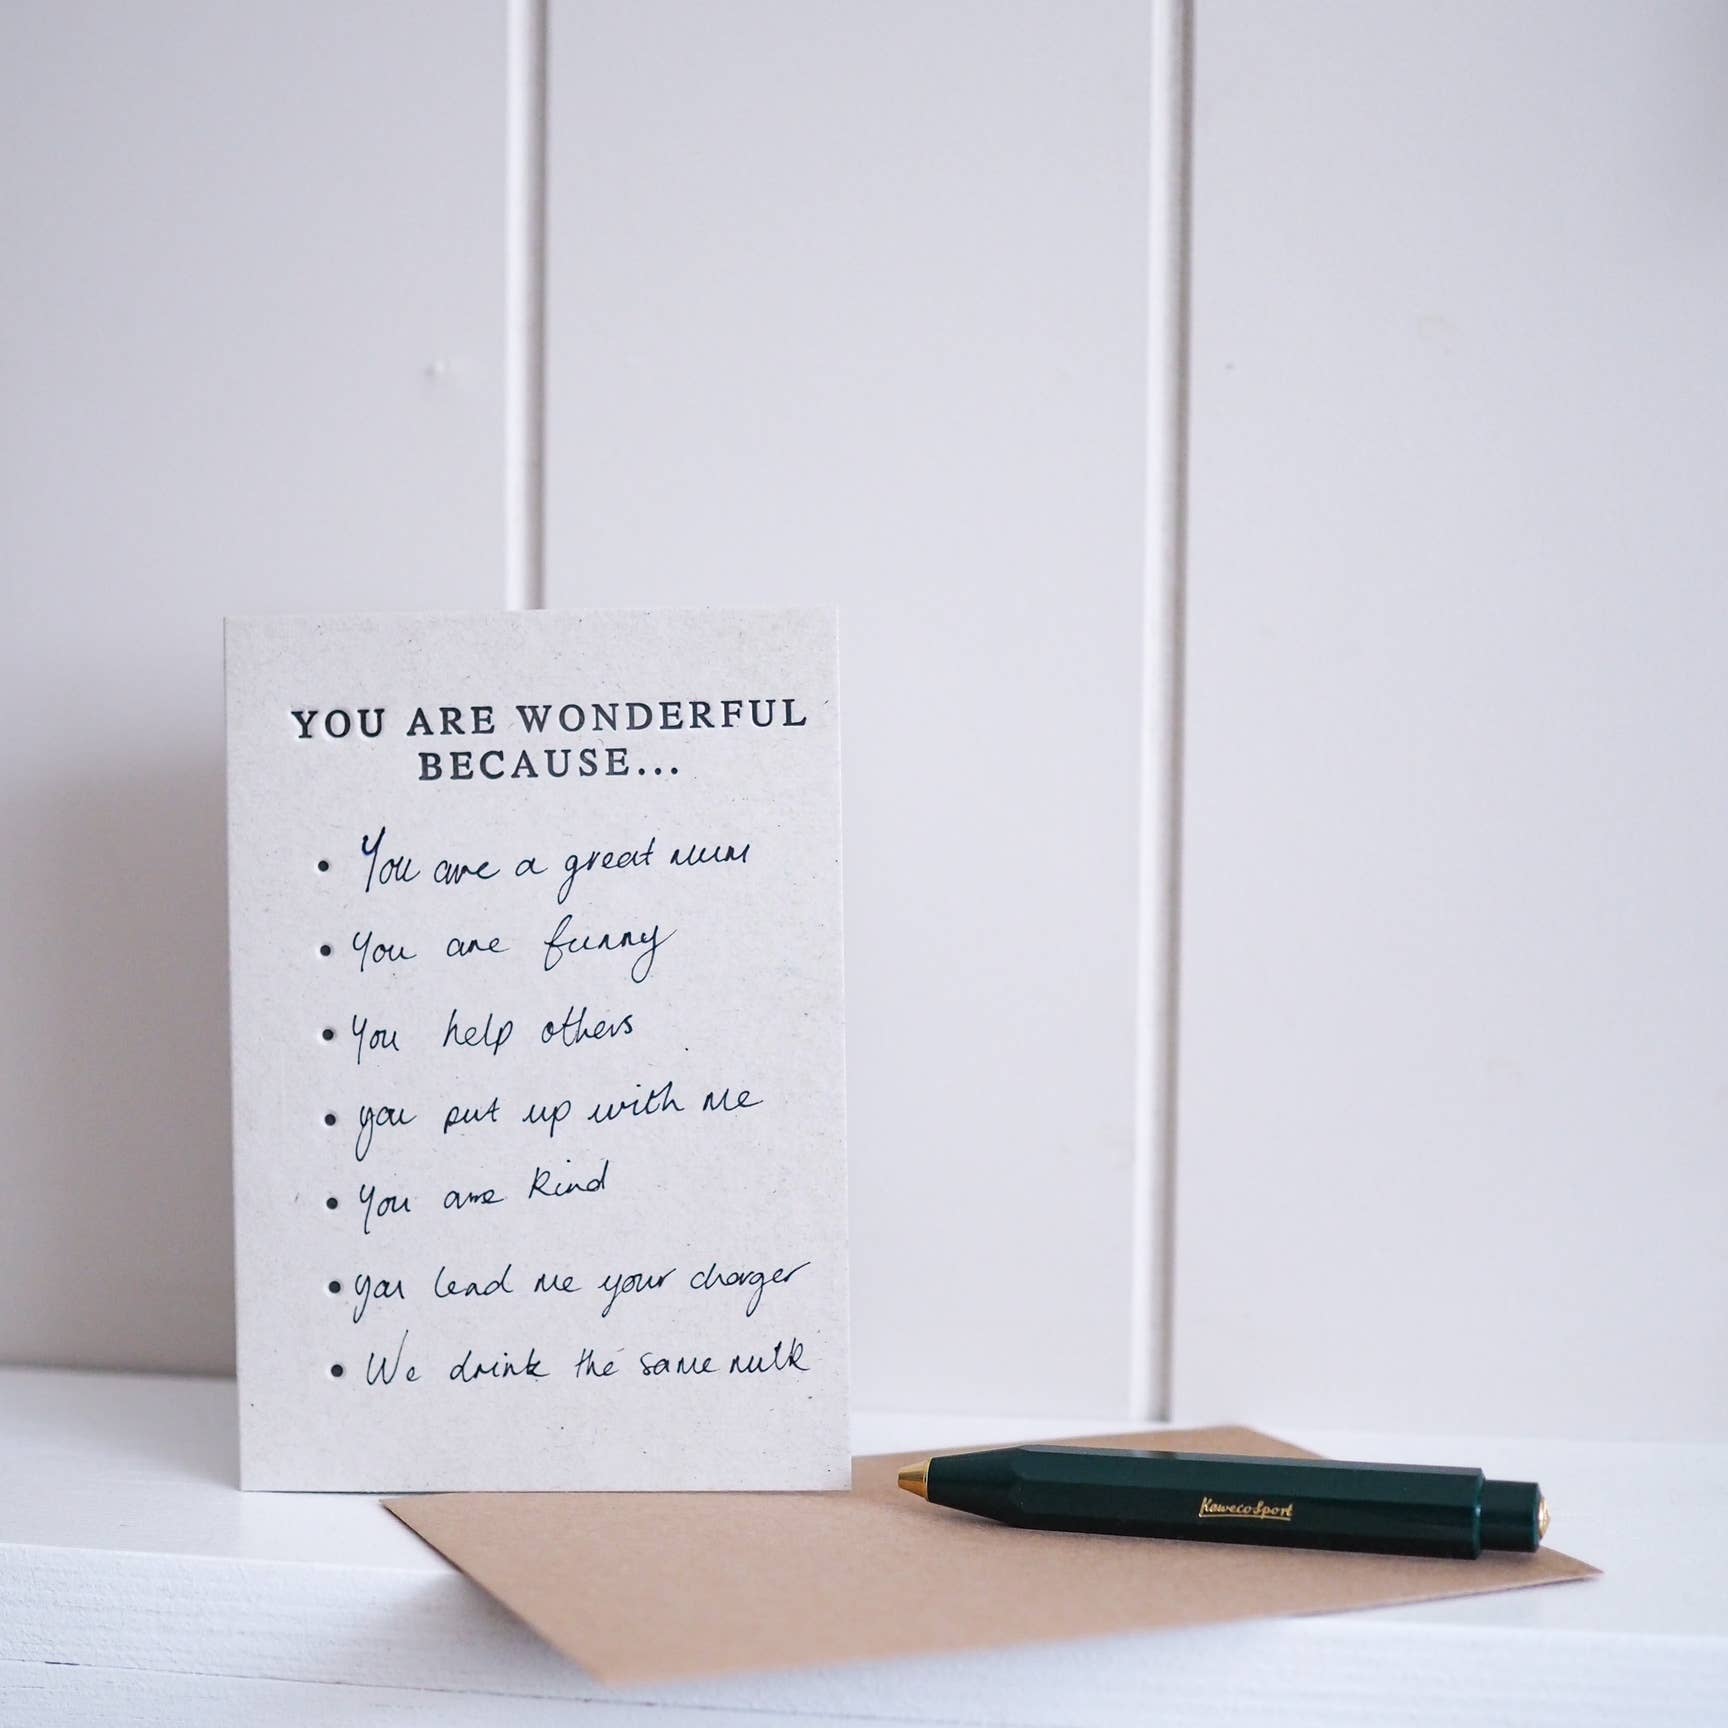 YOU ARE WONDERFUL
BECAUSE...
• You are a great mum
• You are funny
• You help others
• you put up with me
• You are kind
• you lend me your charger
• We drink the same milk
KawecoSport